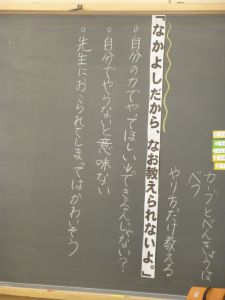 カーブとべんきょうは
べつ
やり方だけ教える
『なかよしだから、なお教えられないよ。』
○自分の力でやってほしい。できるんじゃない?
○自分でやらないと意味ない
○先生におこられてしまってはかわいそう